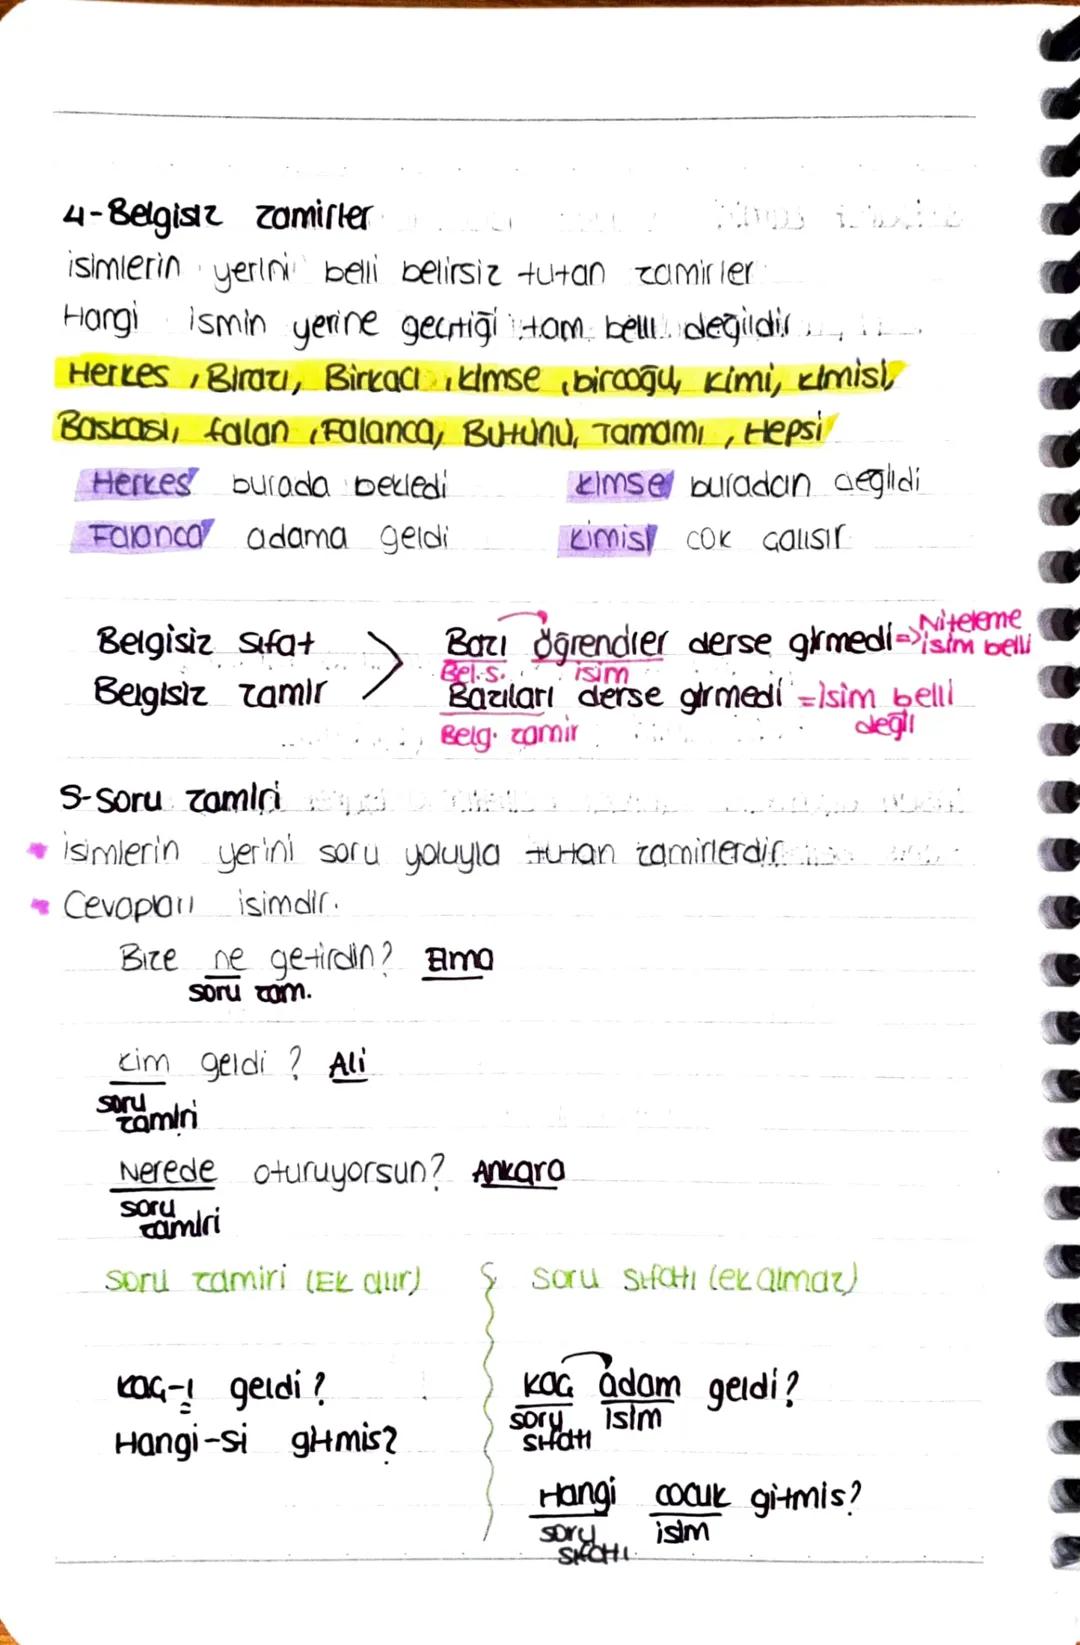 4-Belgisiz zamirler
isimlerin yerini belli belirsiz tutan zamirler
Hangi ismin yerine geçtiği tam belli değildir
Herkes, Birazı, Birkaçı, kimse, birçoğu, kimi, kimisi,
Başkası, falan, Falanca, Bütünü, Tamamı, Hepsi
Herkes burada bekledi kimse buradan değildi
Falanca adama geldi kimisi çok çalışır
Belgisiz sıfat > Bazı öğrenciler derse girmedi => Niteleme isim belli
Bel.s. isim
Belgisiz zamir Bazıları derse girmedi = isim belli değil
Belg. zamir
5-Soru zamiri
isimlerin yerini soru yoluyla tutan zamirlerdir
Cevapları isimdir.
Bize ne getirdin? Elma
soru zam.
kim geldi? Ali
soru zamiri
Nerede oturuyorsun? Ankara
soru zamiri
soru zamiri (Ek alır) soru sıfatı (ek almaz)
kaç-ı geldi? kaç adam geldi?
soru sıfatı isim
Hangi-si gitmiş?
Hangi çocuk gitmiş?
soru sıfatı isim